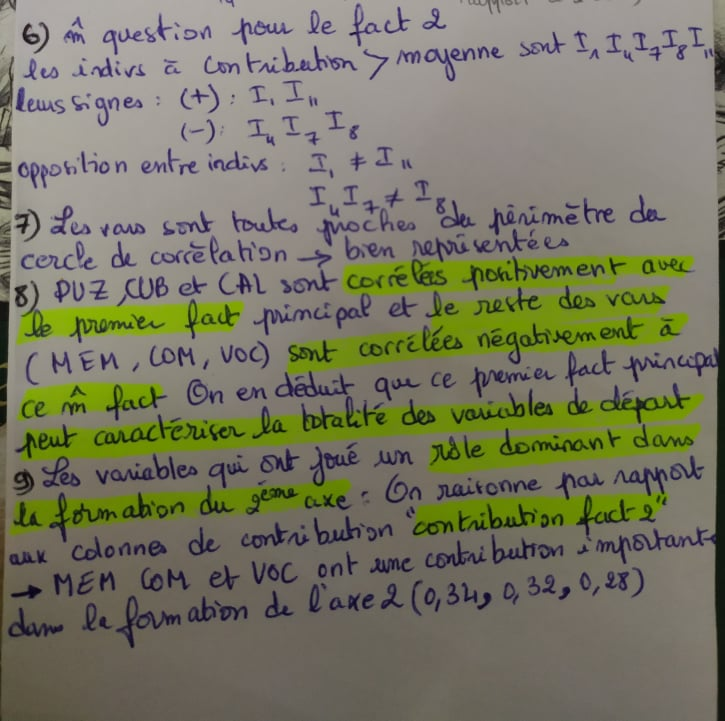 6) m̂ question pour le fact 2
les indivs à contribution > moyenne sont I₁ I₄ I₇ I₈ I₁₁
leurs signes : (+) : I₁ I₁₁
(-) : I₄ I₇ I₈
opposition entre indivs : I₁ ≠ I₁₁
I₄ I₇ ≠ I₈
7) Les vars sont toutes proches du périmètre du
cercle de corrèlation → bien représentées
8) PUZ, CUB et CAL sont corrélés positivement avec
le premier fact principal et le reste des vars
(MEM, COM, VOC) sont corrélées négativement à
ce m̂ fact On en déduit que ce premier fact principal
peut caractériser la totalité des variables de départ
9) Les variables qui ont joué un rôle dominant dans
la formation du 2ème axe : On raisonne par rapport
aux colonnes de contribution "contribution fact 2"
→ MEM COM et VOC ont une contribution importante
dans la formation de l'axe 2 (0,34, 0,32, 0,28)